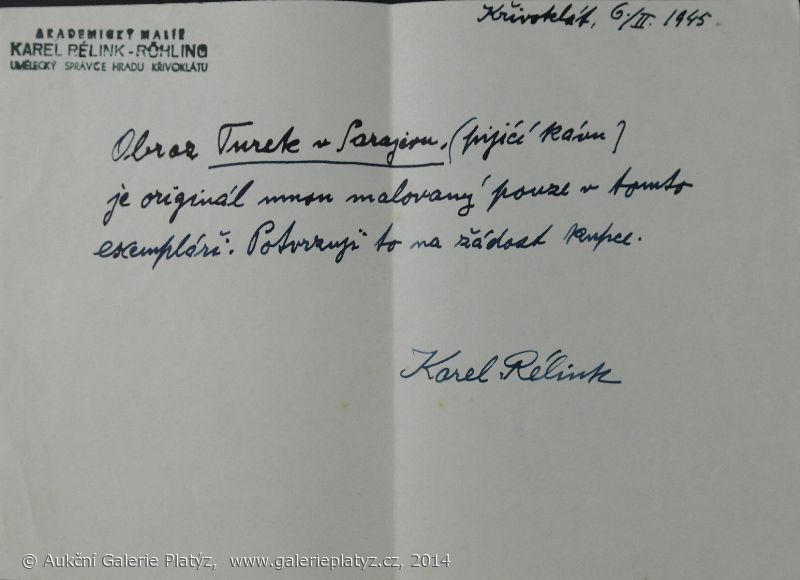 AKADEMICKÝ MALÍŘ
KAREL RÉLINK-RÖHLING
UMĚLECKÝ SPRÁVCE HRADU KŘIVOKLÁTU
Křivoklát, 6./II. 1945.
Obraz Turek v Sarajevu, (pijící kávu)
je originál mnou malovaný pouze v tomto
exempláři. Potvrzuji to na žádost kupce.
Karel Rélink
© Aukční Galerie Platýz, www.galerieplatyz.cz, 2014